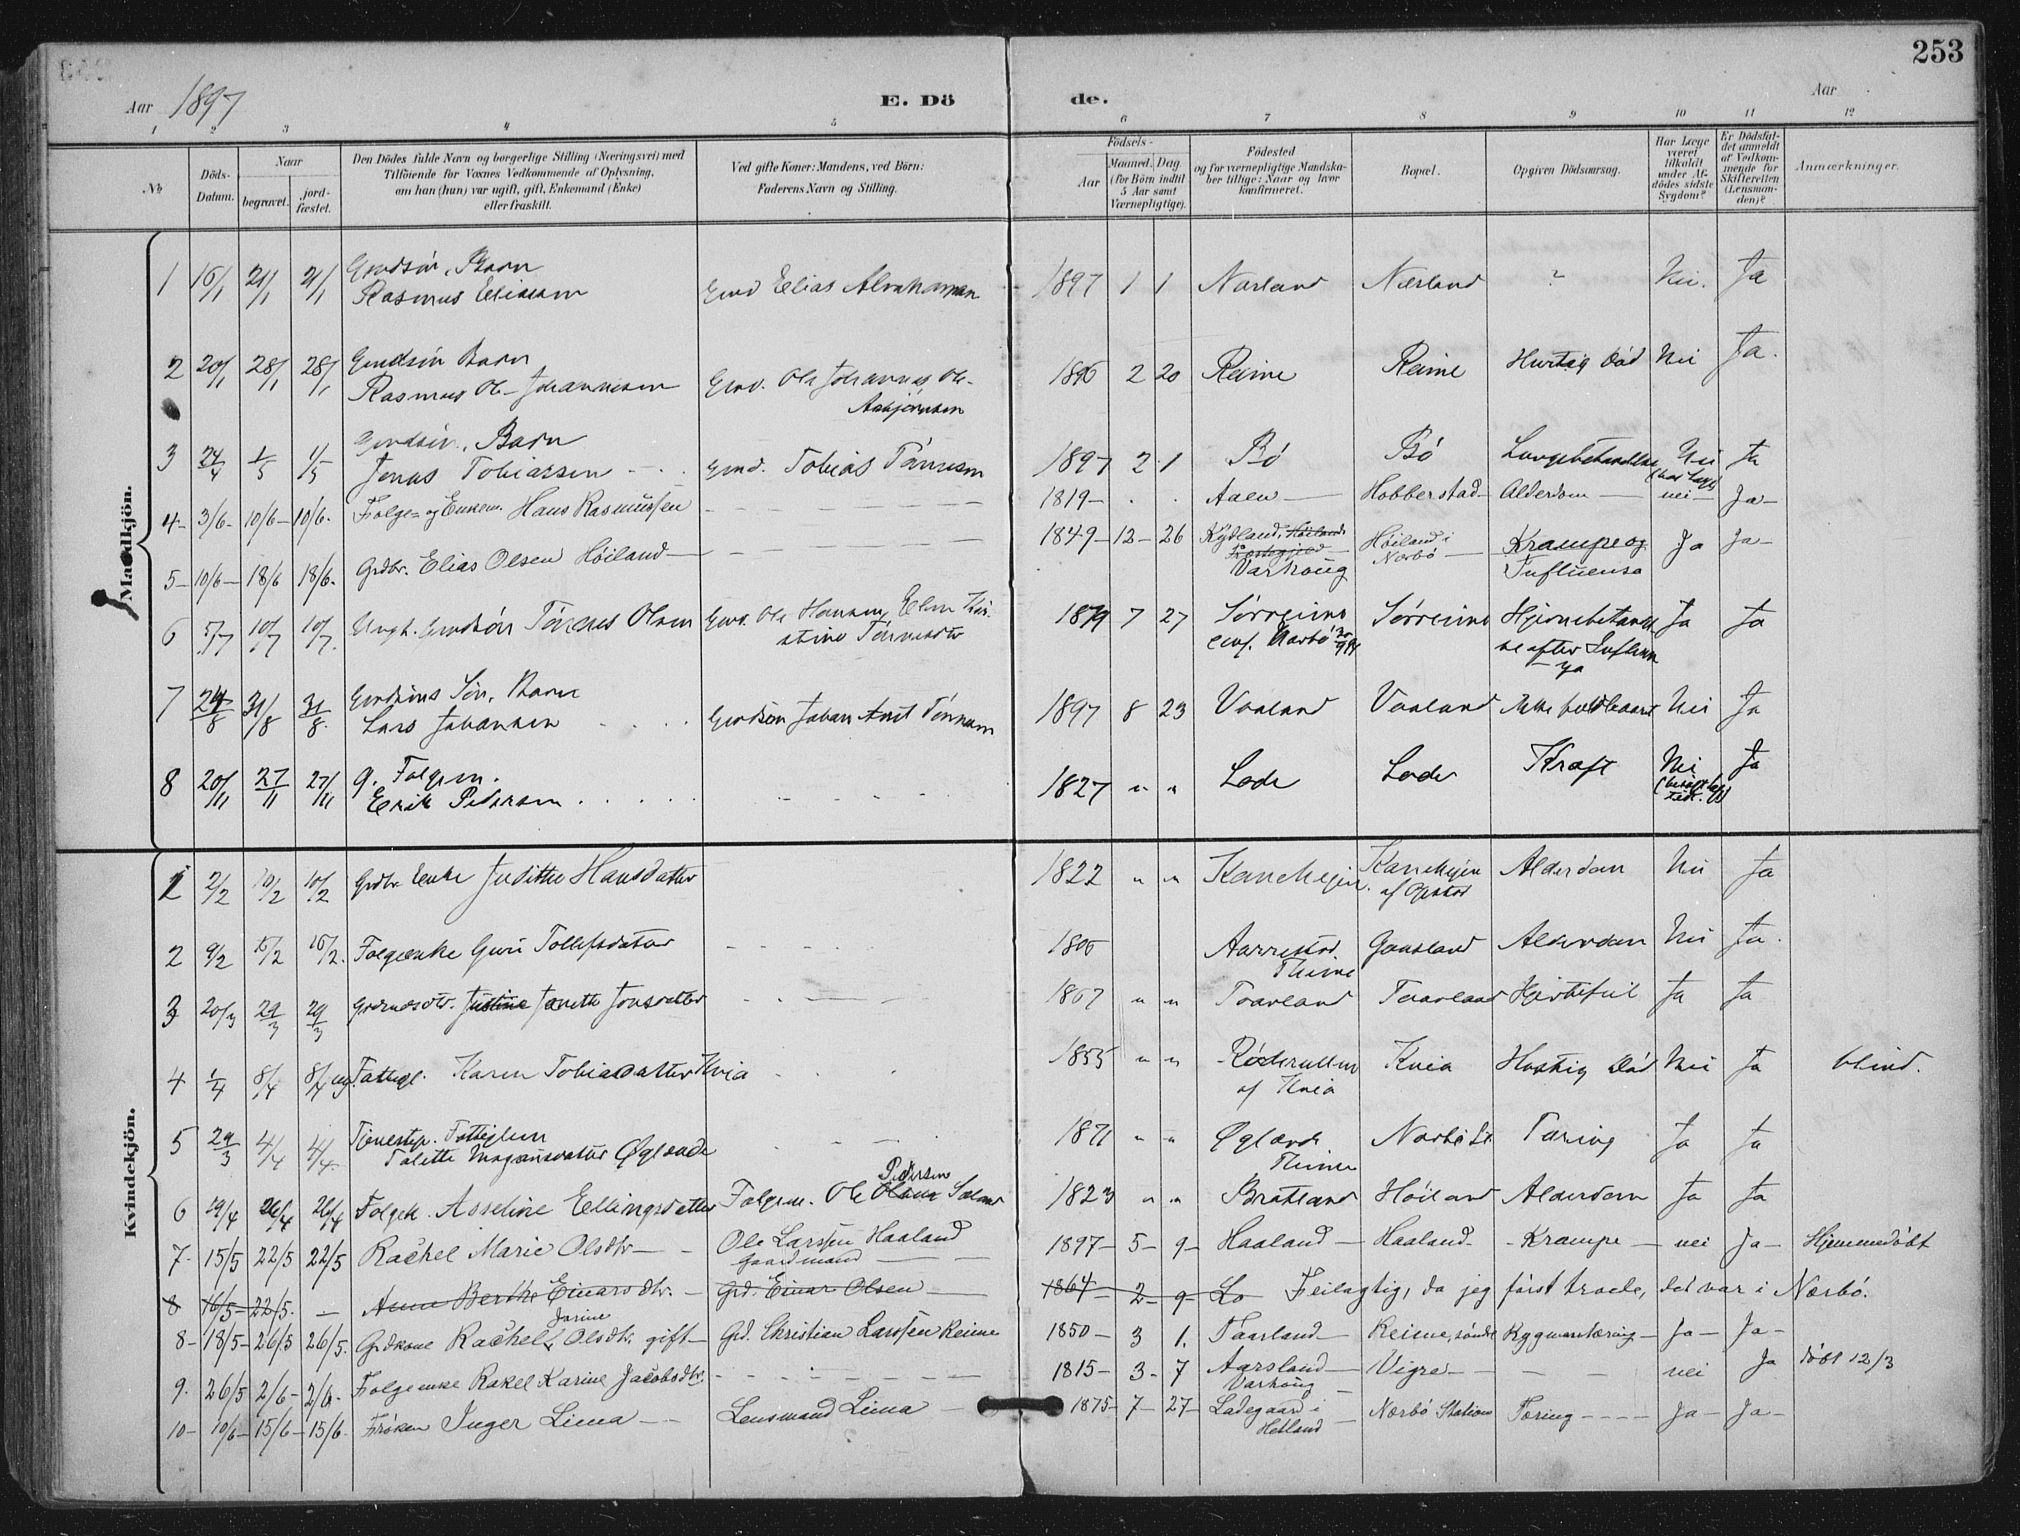 253
Aar 1897
E. Dö
de.
Aar
1 2 3 4 5 6 7 8 9 10 11 12
No
Döds-Datum.
Naar
begravet.
jord-fæstet.
Den Dödes fulde Navn og borgerlige Stilling (Næringsvei) med
Tilföiende for Voxnes Vedkommende af Oplysning,
om han (hun) var ugift, gift, Enkemand (Enke)
eller fraskilt.
Ved gifte Koner: Mandens, ved Börn:
Faderens Navn og Stilling.
Födsels-
Aar
Maaned. Dag.
(for Börn indtil
5 Aar samt
Værnepligtige).
Födested
og for værnepligtige Mandska-
ber tillige: Naar og hvor
konfirmeret.
Bopæl.
Opgiven Dödsaarsag.
Har Læge
været
tilkaldt
under Af-
dödes sidste
Sygdom?
Er Dödsfal-
det anmeldt
af Vedkom-
mende for
Skifteretten
(Lensman-
den)?
Anmærkninger.
Mandkjön.
1 16/1 21/1 21/1 Gmdsön, Barn
Rasmus Eliassen Gmd Elias Abrahamsen 1897 1 1 Nærland Nærland ? Nei. Ja
2 20/1 28/1 28/1 Gmdsön Barn
Rasmus Ol. Johannesen Gmd. Ole Johannes Ol.
Asbjörnsen 1896 2 20 Reime Reime Hurtig Död Nei Ja.
3 24/4 1/5 1/5 Gmdsön, Barn
Jonas Tobiassen Gmd. Tobias Tönnesen 1897 2 1 Bö Bö Nei Ja
4- 3/6- 10/6- 10/6. Folge- og Enkem. Hans Rasmussen 1819- Aaen Hobberstad- Alderdom nei Ja-
5- 10/6- 18/6 18/6. Grdbr. Elias Olsen Höiland 1849-12-26 Kydland,
Varhoug Höiland i
Nærbö Krampe og
Influensa Ja Ja-
6 5/7 10/7 10/7. Ungk. Gmdsön Tönnes Olsen Gmd. Ole Hansen, Elen Kir-
stine Tönnesdtr 1879 7 27 Sörreime
conf. Nærbö Sörreime Hjernebetænd
se efter Influen
za Ja Ja
7 24/8 31/8 31/8. Gmdsöns Sön, Barn
Lars Johansen Gmdsön Johan Amt Tönnesen 1897 8 23 Vaaland Vaaland Nei Ja
8 20/11 27/11 27/11 g. Folgem.
Erik Pedersen 1827 " " Lode Lode Kræft Nei Ja
Kvindekjön.
1 2/2 10/2 10/2 Grdbr Enke Judithe Hansdatter 1822 " " Kanehejen Kanehejen
af Opstad Alderdom Nei Ja
2 9/2 15/2 15/2. Folgeenke Guri Tollefsdatter 1806 Aarrestad.
Thime Gausland Alderdom Nei Ja.
3 20/3 29/3 29/3 Jonsdatter 1867 " " Taarland Taarland Hjertefeil Ja Ja
4 1/4 8/4 8/4 ug. Fattigl. Karen Tobiasdatter Kvia 1855 " " af Kvia Kvia Hastig Död Nei Ja blind.
5 29/3 4/4 4/4 Tjenestep. Fattiglem
Talette Mogensdatter Öglænde 1871 " " Öglænd
Thime Nærbö St. Tæring Ja Ja
6 19/4 26/4 26/4 Folgek. Asseline Ellingsdatter Folgem. Ole Olsen Pedersen 1823 " " Bratland Höiland Alderdom Ja Ja
7- 15/5 22/5 22/5 Rachel Marie Olsdtr Ole Larssen Haaland
Gaardmand 1897- 5- 9- Haaland Haaland- -Krampe nei Ja- Hjemmedöbt
8 16/5- 22/5. Anne Berthe Einarsdtr. Grd. Einar Olsen 1864 2- 9- Lo Feilagtig, da jeg först troede, det var i Nærbö.
8- 18/5- 26/5 26/5. Grdkone Rachel Jorine Olsdtr. gift Grd. Christian Larssen Reime 1850- 3 1. Taarland Reime, söndre Rygmarvtæring Ja- Ja-
9. 26/5 2/6- 2/6- Folgeenke Rakel Karine Jacobsdtr. 1815- 3- 7 Aarsland
Varhoug Vigre nei Ja döbt 12/3
10- 10/6- 15/6- 15/6. Fröken Inger Lima Lensmand Lima 1875- 7- 27- Ladegaard i
Hetland Nærbö Station Tæring Ja- Ja-